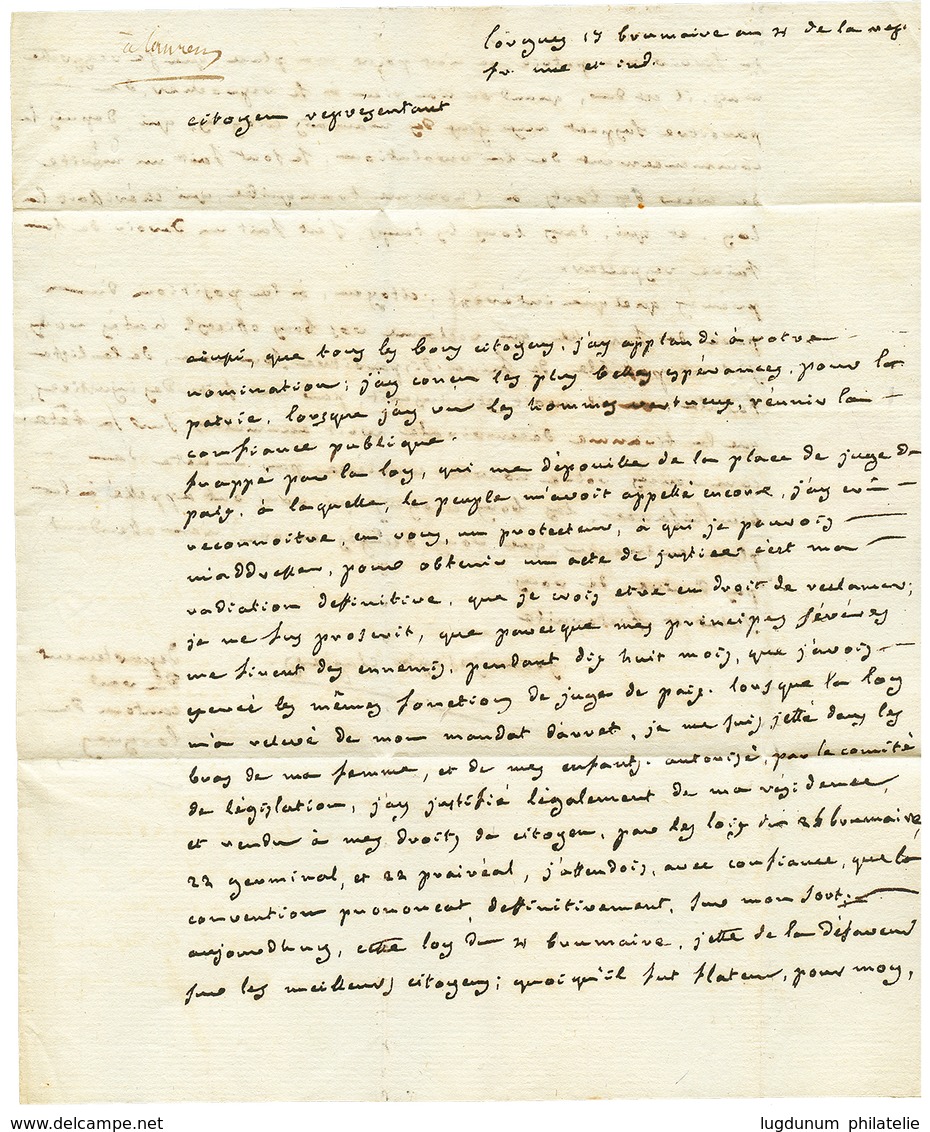 à laurens
lorgues 15 brumaire an 4 de la rep.
fr. une et ind.
citoyen représentant
ainsi, que tous les bons citoyens, j'ay applaudi à votre
nomination; j'ay concu les plus belles espérances, pour la
patrie, lorsque j'ay vu les hommes vertueux, réunir la
confiance publique.
frappé par la loy, qui me dépouille de la place de juge de
paix, à laquelle, le peuple m'avoit appellé encore, j'ay crû
reconnoitre, en vous, un protecteur, à qui je pouvois
m'addresser, pour obtenir un acte de justice; c'est ma
radiation deffinitive, que je crois etre en droit de reclamer;
je ne fus proscrit, que parceque mes principes sévères
me firent des ennemis, pendant dix huit mois, que j'avois
exercé les mêmes fonctions de juge de paix. lorsque la loy
m'a relevé de mon mandat d'arret, je me suis jetté dans les
bras de ma femme, et de mes enfants. autorisé, par le comité
de législation, j'ay justifié légalement de ma résidence,
et rendu à mes droits de citoyen, par les loix du brumaire,
22 germinal, et 22 prairéal, j'attendois, avec confiance, que la
convention prononcat, deffinitivement, sur mon sort;
aujourdhuy, cette loy du 4 brumaire, jette de la défaveur
sur les meilleurs citoyens; quoiqu'il fut flateur, pour moy,
www.delcampe.net
lugdunum philatelie